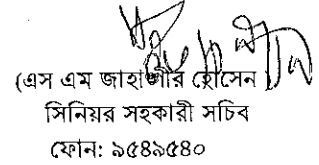 (এস এম জাহাঙ্গীর হোসেন)
সিনিয়র সহকারী সচিব
ফোন: ৯৫৪৯৫৪০